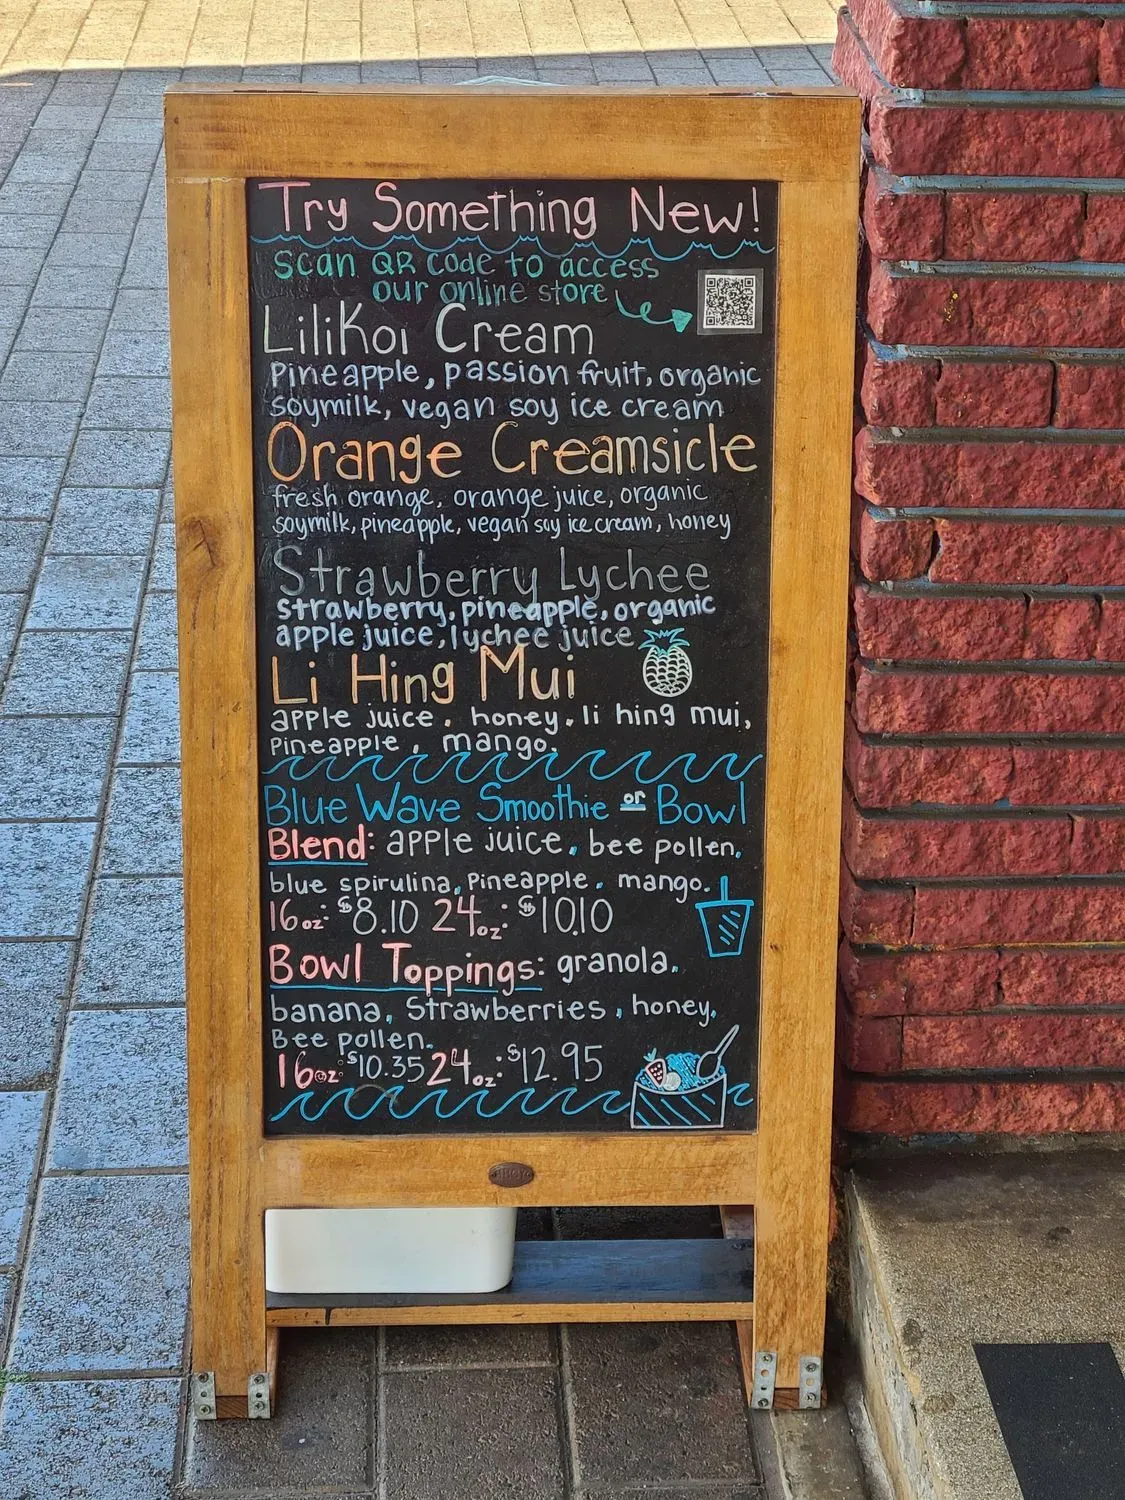 Try Something New!
Scan QR code to access
our online store
LiliKoi Cream
Pineapple, passion fruit, organic
soymilk, vegan soy ice cream
Orange Creamsicle
fresh orange, orange juice, organic
soymilk, pineapple, vegan soy ice cream, honey
Strawberry Lychee
strawberry, pineapple, organic
apple juice, lychee juice
Li Hing Mui
apple juice, honey, li hing mui,
Pineapple, mango.
Blue Wave Smoothie or Bowl
Blend: apple juice, bee pollen,
blue spirulina, Pineapple, mango.
16oz: $8.10 24oz: $10.10
Bowl Toppings: granola,
banana, Strawberries, honey,
Bee pollen.
16oz: $10.35 24oz: $12.95